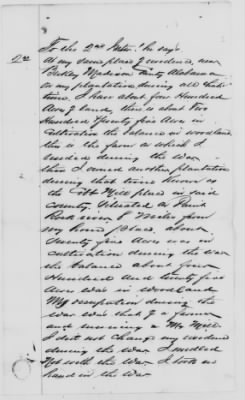 To the 2nd Inter. he says
2nd At my same place of residence, near
Madison County Alabama
on my plantation during all that
time. I have about five Hundred
Acres of land, there is about Two
Hundred Twenty five Acres in
cultivation the balance in woodland
this is the farm on which I
resided during the war.
then I owned another plantation
during that time known as
the Cobb Mill place in said
county. Situated on Paint
Rock river 8 Miles from
my home place. about
Twenty five Acres was in
cultivation during the war
the balance about four
Hundred and twenty five
Acres was in woodland
My occupation during the
war was that of a farmer
and running a Mill
I did not change my residence
during the war. I meddled
not with the war I took no
hand in the war